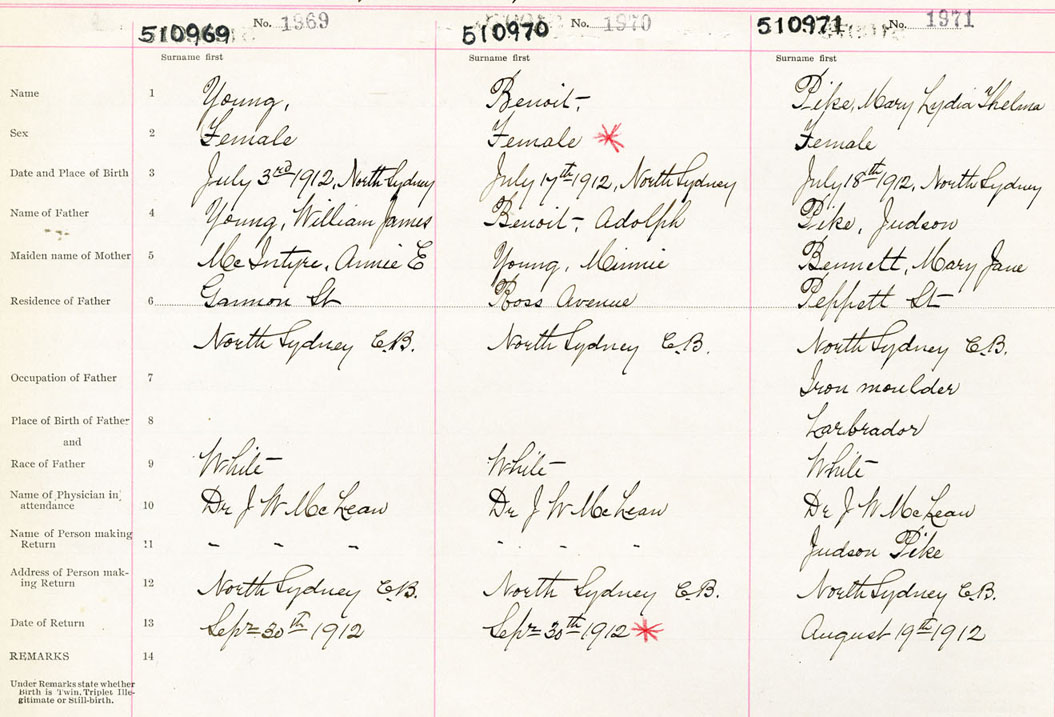 510969 No. 1969 510970 No. 1970 510971 No. 1971
Surname first Surname first Surname first
Name 1 Young, Benoit, Pike, Mary Lydia Thelma
Sex 2 Female Female * Female
Date and Place of Birth 3 July 3rd 1912, North Sydney July 17th 1912, North Sydney July 18th 1912, North Sydney
Name of Father 4 Young, William James Benoit, Adolph Pike, Judson
Maiden name of Mother 5 McIntyre, Annie E Young, Minnie Bennett, Mary Jane
Residence of Father 6 Gannon St Ross Avenue Peppett St
North Sydney C.B. North Sydney C.B. North Sydney C.B.
Occupation of Father 7 Iron moulder
Place of Birth of Father 8 Larbrador
and
Race of Father 9 White White White
Name of Physician in
attendance 10 Dr J W McLean Dr J W McLean Dr J W McLean
Name of Person making
Return 11 - - - - - - Judson Pike
Address of Person mak-
ing Return 12 North Sydney C.B. North Sydney C.B. North Sydney C.B.
Date of Return 13 Sepr 30th 1912 Sepr 30th 1912 * August 19th 1912
REMARKS 14
Under Remarks state whether
Birth is Twin, Triplet, Ille-
gitimate or Still-birth.